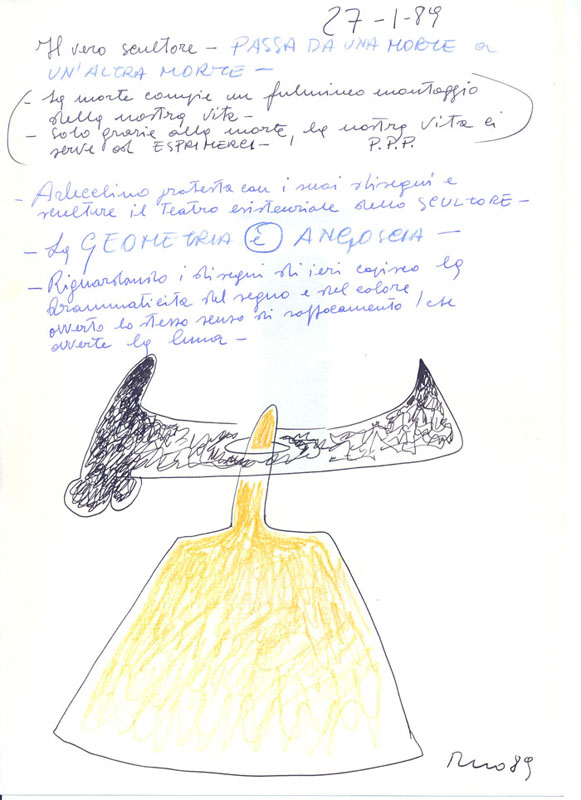 27-1-89
Il vero scultore - PASSA DA UNA MORTE A
UN'ALTRA MORTE -
- La morte compie un fulmineo montaggio
della nostra vita -
- Solo grazie alla morte, la nostra vita ci
serve ad ESPRIMERCI - P.P.P.
- Arlecchino protesta con i suoi disegni e
sculture il Teatro esistenziale dello SCULTORE -
- La GEOMETRIA È ANGOSCIA -
- Riguardando i disegni di ieri capisco la
drammaticità del segno e del colore,
avverto lo stesso senso di soffocamento, che
avverte la luna -
89